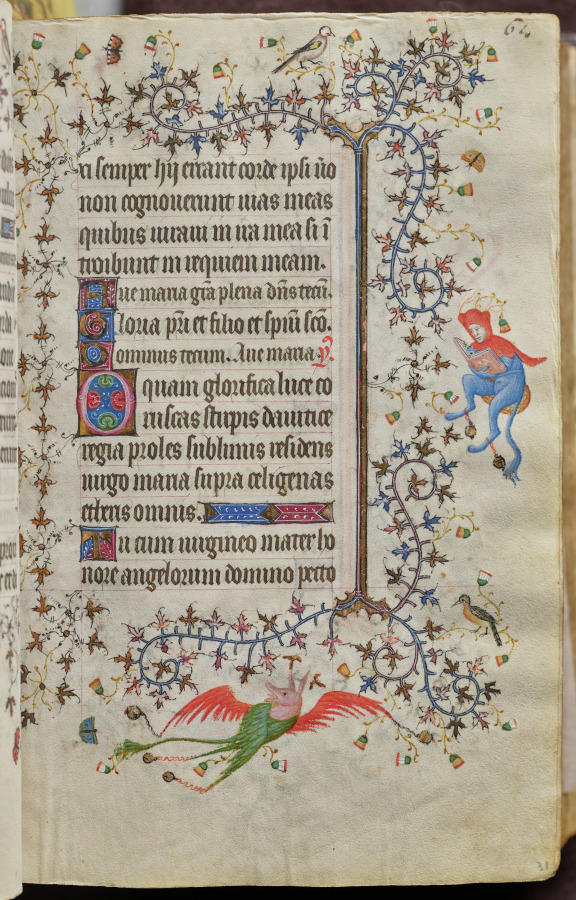 64
ri semper hij errant corde ipsi u̅o
non cognouerunt uias meas
quibus iuraui in ira mea si i̅
troibunt in requiem meam.
Aue maria gr̅a plena dn̅s tecu̅.
Gloria pr̅i et filio et spiui sc̅o.
Dominus tecum. Aue maria. y̅.
O quam glorifica luce co
ruscas stirpis dauitice
regia proles sublimis residens
uirgo maria supra celigenas
etheris omnis.
Tu cum uirgineo mater ho
nore angelorum domino pecto